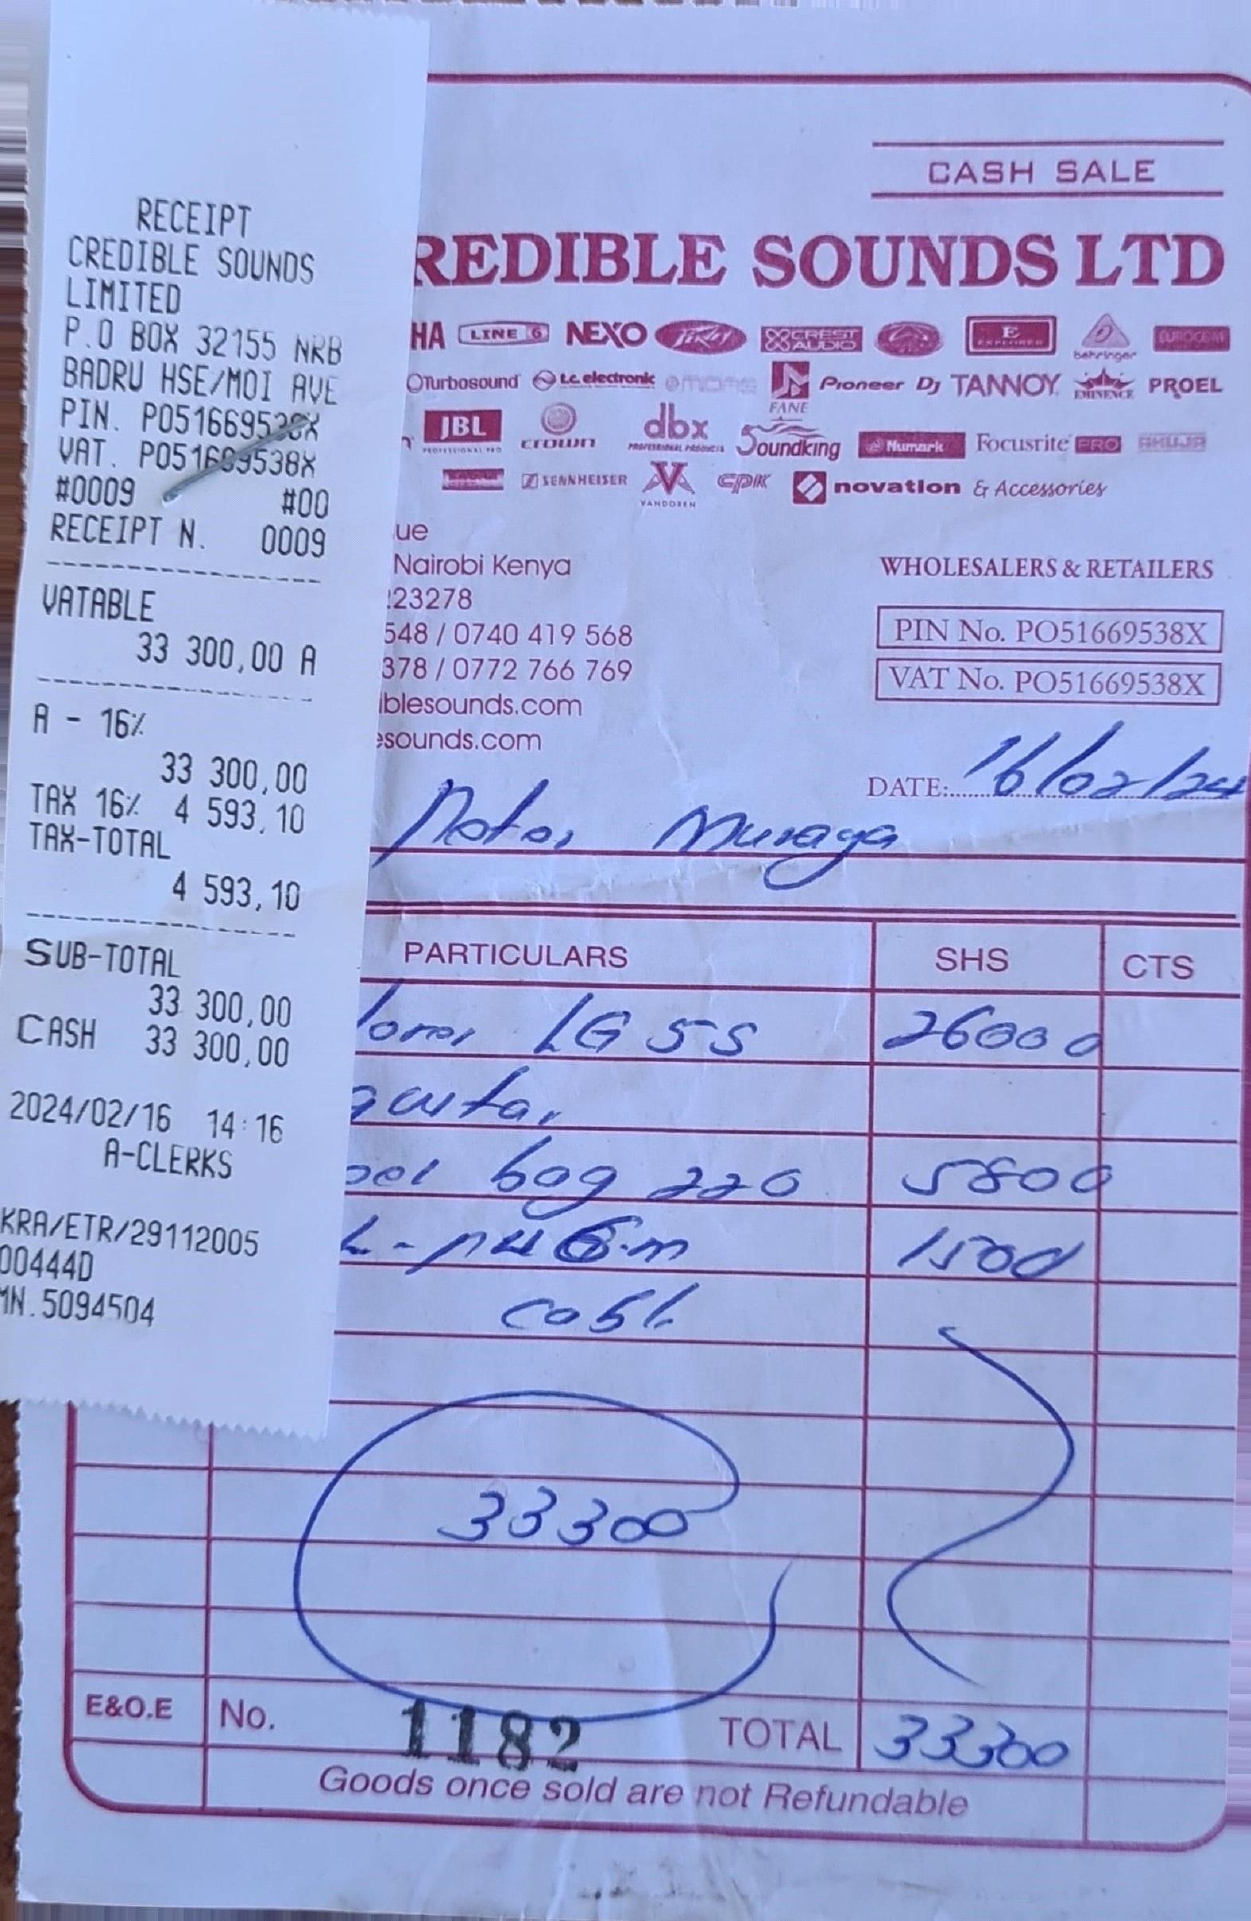 RECEIPT
CREDIBLE SOUNDS
LIMITED
P.O BOX 32155 NRB
BADRU HSE/MOI AVE
PIN. P051669538X
VAT. P051669538X
#0009 #00
RECEIPT N. 0009
VATABLE
33 300,00 A
A - 16%
33 300,00
TAX 16% 4 593,10
TAX-TOTAL
4 593,10
SUB-TOTAL
33 300,00
CASH 33 300,00
2024/02/16 14:16
A-CLERKS
KRA/ETR/29112005
00444D
MN.5094504
CASH SALE
REDIBLE SOUNDS LTD
HA LINE 6 NEXO Peavey CREST AUDIO E EXPLORER behringer EUROCOM
Turbosound t.c. electronic FANE Pioneer Dj TANNOY EMINENCE PROEL
JBL PROFESSIONAL crown dbx PROFESSIONAL PRODUCTS Soundking Numark Focusrite PRO AHUJA
SENNHEISER VANDOREN CPK novation & Accessories
ue
Nairobi Kenya
223278
548 / 0740 419 568
378 / 0772 766 769
iblesounds.com
esounds.com
WHOLESALERS & RETAILERS
PIN No. PO51669538X
VAT No. PO51669538X
DATE: 16/02/24
Muraya
PARTICULARS SHS CTS
LG 55 26000
guitar
bag 220 5800
6.m 1500
cash
33300
E&O.E No. 1182 TOTAL 33300
Goods once sold are not Refundable